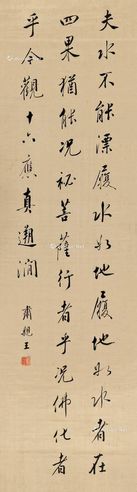 夫水不能漂履水如地履地如水者在
四果猶能況秘菩薩行者乎況佛化者
乎今觀十六應真遊澗
肅親王